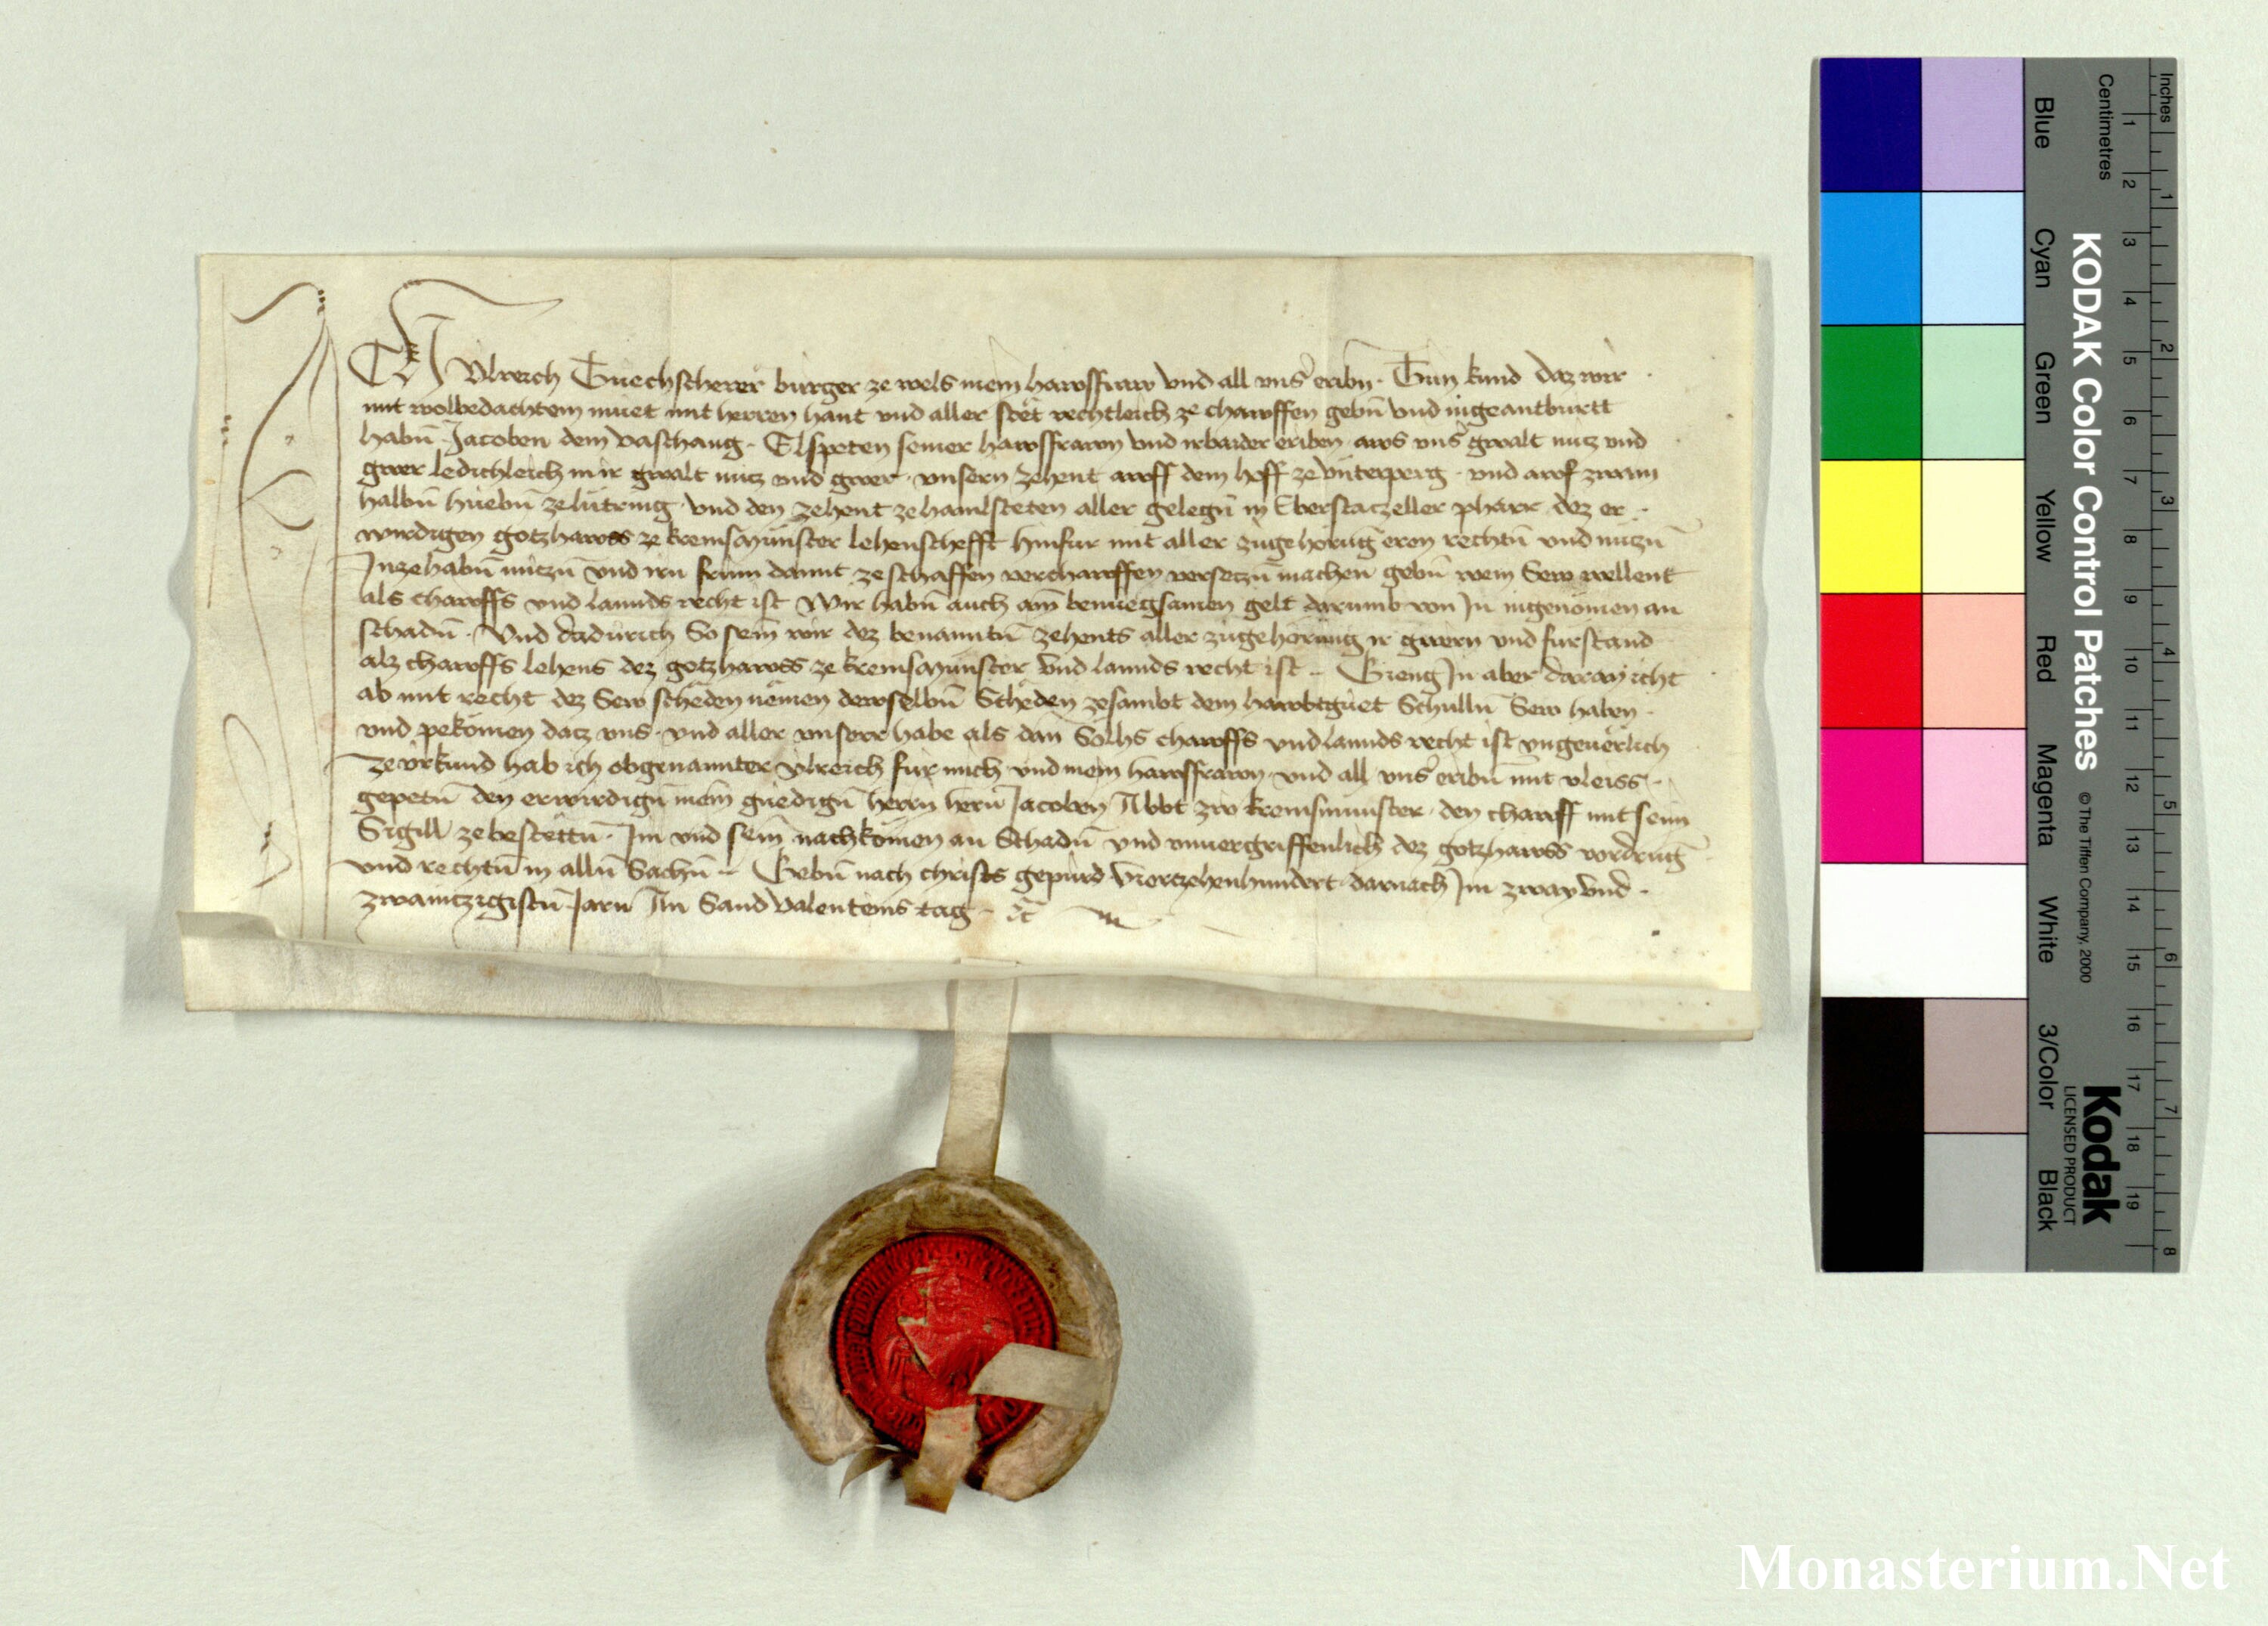 Ich Vlreich Tuechscherer burger ze wels mein hawsfraw vnd all vns̄ eribn̄ · Tun kund daz wir
mit wolbedachtem muet mit herren hant vnd aller stët rechtleich ze chawffen gebn̄ vnd ingeantburtt
habn̄ Jacoben dem vaschang · Elspeten seiner hawsfrawn vnd irbaider eriben aws vns̄ gwalt nucz vnd
gwer ledichleich in ir gwalt nucz vnd gwer · vnsern zehent awff dem hoff ze vnterperg · vnd awf zwain
halbn̄ huebn̄ ze lutring · vnd den zehent ze hamlsteten aller gelegn̄ in Eberstaczeller pharr dez er
wirdigen gotzhawss ze kremsmunster lehenschefft hinfur mit aller zugehorūg eren rechtn̄ vnd nuczn̄
Inzehabn̄ nuczn̄ vnd irn frum damit ze schaffen verchawffen versetzn̄ machen gebn̄ wem Sew wellent
als chawffs vnd lannds recht ist Wir habn̄ auch ain benuegsamen gelt darumb von In ingenōmen an
schadn̄ · Vnd dadurich So sein wir dez benantn̄ zehents aller zugehorung ir gwern vnd furstand
alz chawffs lehens dez gotzhawss ze kremsmunster vnd lannds recht ist · Gieng In aber daran icht
ab mit recht dez Sew scheden nemen dewselbn̄ Scheden zesambt dem hawbtguet Schulln̄ Sew haben
vnd pekomen dacz vns · vnd aller vnserr habe als dan Solhs chawffs vnd lannds recht ist vngeuerlich
Ze vrkund hab ich obgenannter vlreich fur mich vnd mein hawsfrawn · vnd all vns̄ eribn̄ mit vleiss
gepetn̄ den erwirdign̄ mein gnedign̄ herrn hern̄ Jacoben Abbt zw kremsmunster · den chawff mit seim
Sigill ze bestettn̄ · Im vnd sein nachkomen an Schadn̄ vnd vnuergriffenlich dez gotzhawss vordrūg
vnd rechtn̄ in alln̄ Sachn̄ · Gebn̄ nach christs gepurd vierczehenhundert darnach Im zway vnd
zwainczigistn̄ Jarn̄ An Sand valenteins tag · ꝛc̄
KODAK Color Control Patches © The Tiffen Company, 2000
Kodak
LICENSED PRODUCT
Inches 1 2 3 4 5 6 7 8
Centimetres 1 2 3 4 5 6 7 8 9 10 11 12 13 14 15 16 17 18 19
Blue Cyan Green Yellow Red Magenta White 3/Color Black
Monasterium.Net